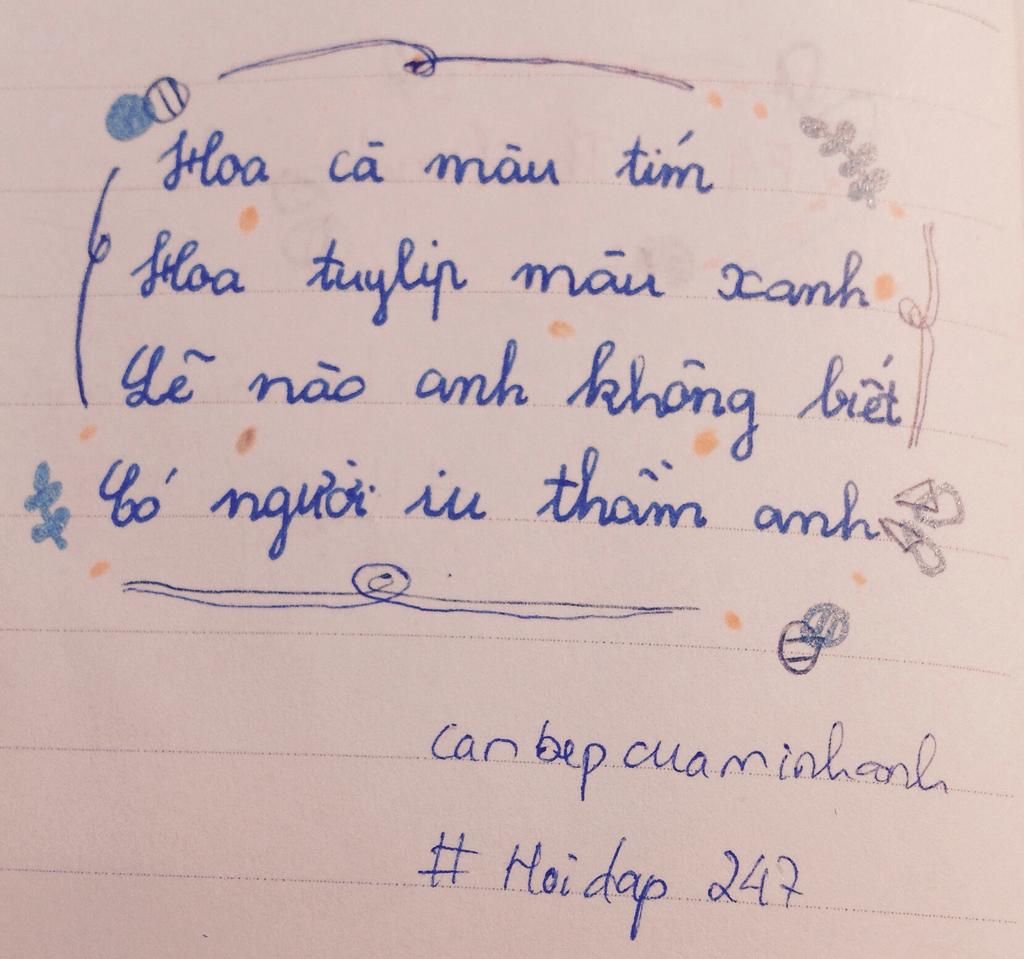 Hoa cà màu tím
Hoa tuylip màu xanh
Lẽ nào anh không biết
Có người iu thầm anh
canbepcuaminhanh
# Hoidap 247